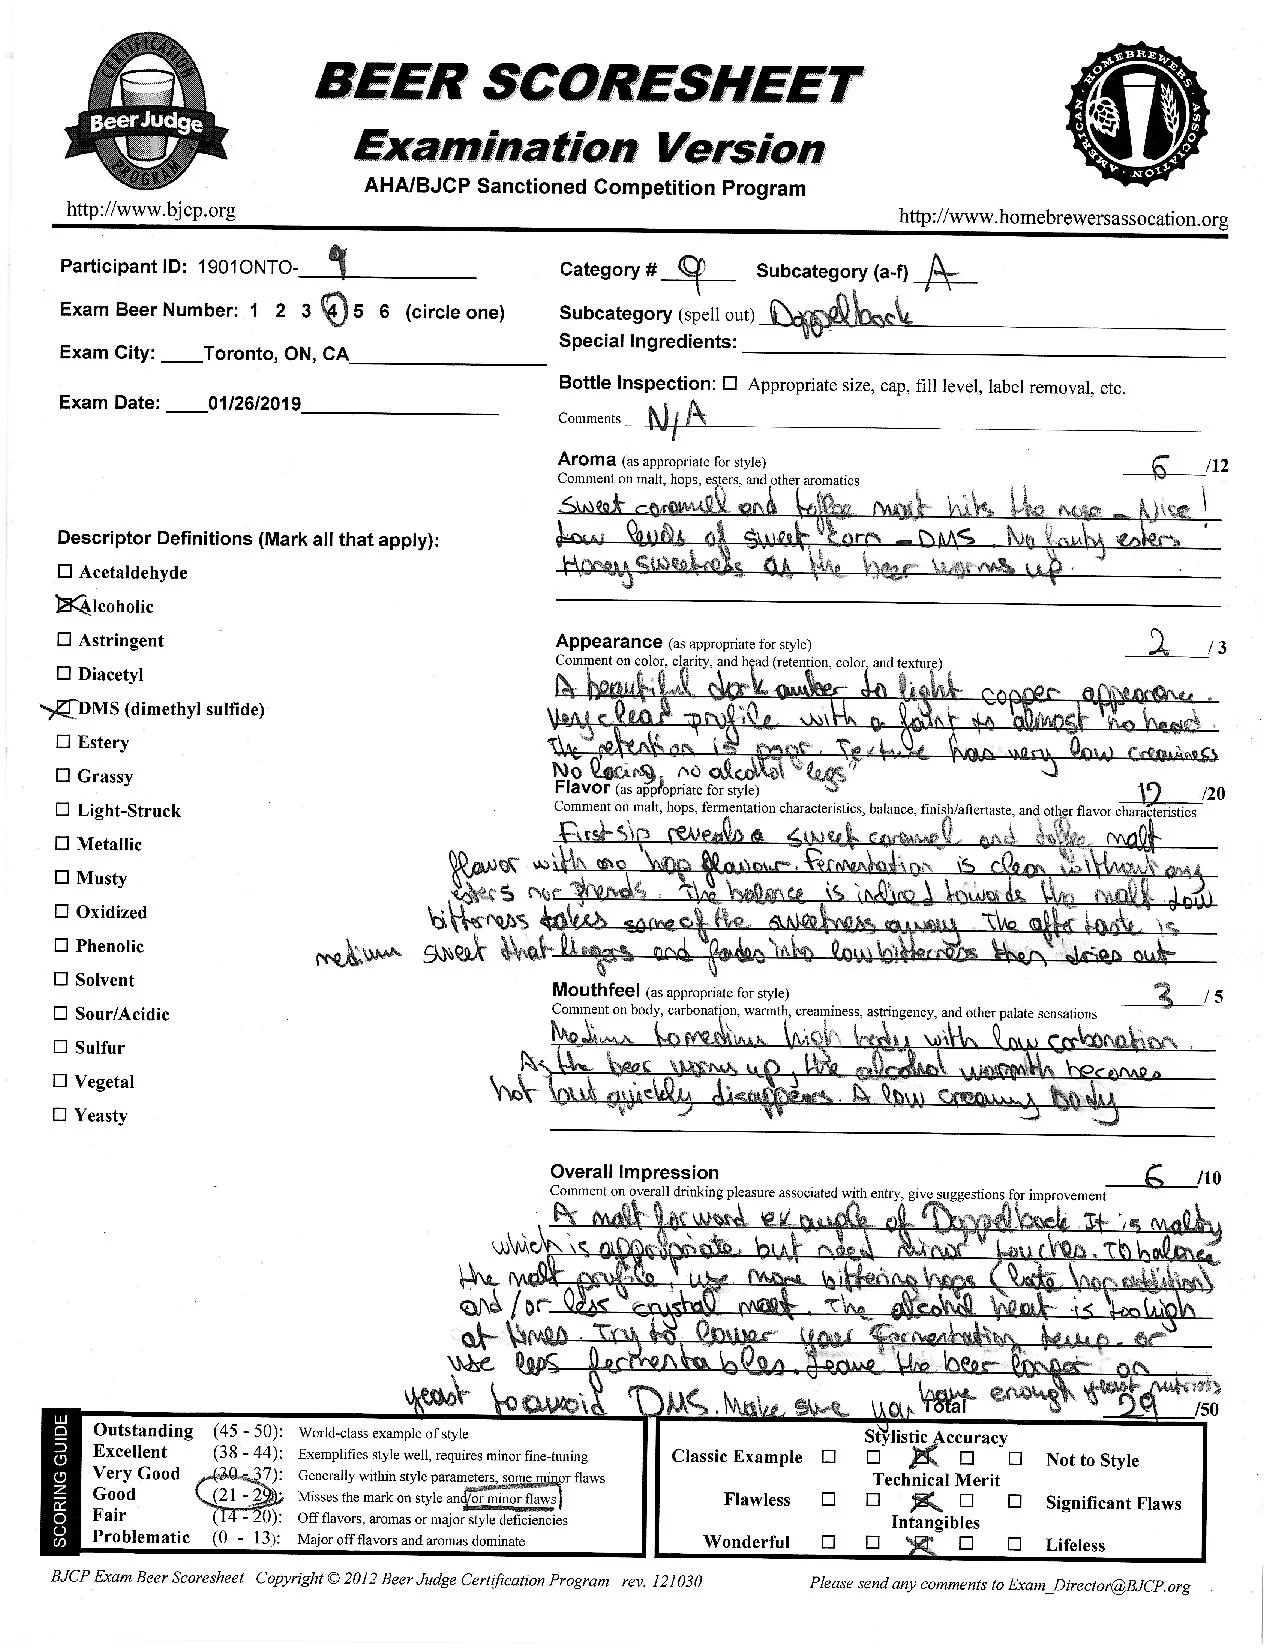 BEER SCORESHEET
Examination Version
AHA/BJCP Sanctioned Competition Program
CERTIFICATION
Beer Judge
PROGRAM
AMERICAN HOMEBREWERS ASSOCIATION
http://www.bjcp.org
http://www.homebrewersassocation.org
Participant ID: 1901ONTO- 9
Exam Beer Number: 1 2 3 4 5 6 (circle one)
Exam City: Toronto, ON, CA
Exam Date: 01/26/2019
Category # 9 Subcategory (a-f) A
Subcategory (spell out) Doppelbock
Special Ingredients:
Bottle Inspection: ☐ Appropriate size, cap, fill level, label removal, etc.
Comments N/A
Descriptor Definitions (Mark all that apply):
☐ Acetaldehyde
☒ Alcoholic
☐ Astringent
☐ Diacetyl
☒ DMS (dimethyl sulfide)
☐ Estery
☐ Grassy
☐ Light-Struck
☐ Metallic
☐ Musty
☐ Oxidized
☐ Phenolic
☐ Solvent
☐ Sour/Acidic
☐ Sulfur
☐ Vegetal
☐ Yeasty
Aroma (as appropriate for style) 6 /12
Comment on malt, hops, esters, and other aromatics
Sweet caramell and toffee malt hits the nose - Nice!
Low levels of sweet corn - DMS. No fruity esters
Honey sweetness as the beer warms up.
Appearance (as appropriate for style) 2 /3
Comment on color, clarity, and head (retention, color, and texture)
A beautiful dark amber to light copper appearance.
Very clear profile with a faint to almost no head.
The retention is poor. Texture has very low creaminess
No lacing, no alcohol "legs"
Flavor (as appropriate for style) 12 /20
Comment on malt, hops, fermentation characteristics, balance, finish/aftertaste, and other flavor characteristics
First sip reveals a sweet caramel and toffee malt
flavor with no hop flavour. Fermentation is clean without any
esters nor phenols. The balance is inclined towards the malt. Low
bitterness takes some of the sweetness away. The after taste is
medium sweet that lingers and fades into low bitterness then dries out
Mouthfeel (as appropriate for style) 3 /5
Comment on body, carbonation, warmth, creaminess, astringency, and other palate sensations
Medium to medium high body with low carbonation.
As the beer warms up, the alcohol warmth becomes
hot but quickly disappears. A low creamy body
Overall Impression 6 /10
Comment on overall drinking pleasure associated with entry, give suggestions for improvement
A malt forward example of Doppelbock. It is malty
which is appropriate but need minor touches. To balance
the malt profile, use more bittering hops (late hop addition)
and/or less crystal malt. The alcohol heat is too high
at times. Try to lower your fermentation temp. or
use less fermentables. Leave the beer longer on
yeast to avoid DMS. Make sure you have enough yeast nutrients
Total 29 /50
SCORING GUIDE
Outstanding (45 - 50): World-class example of style
Excellent (38 - 44): Exemplifies style well, requires minor fine-tuning
Very Good (30 - 37): Generally within style parameters, some minor flaws
Good (21 - 29): Misses the mark on style and/or minor flaws
Fair (14 - 20): Off flavors, aromas or major style deficiencies
Problematic (0 - 13): Major off flavors and aromas dominate
Stylistic Accuracy
Classic Example ☐ ☐ ☒ ☐ ☐ Not to Style
Technical Merit
Flawless ☐ ☐ ☒ ☐ ☐ Significant Flaws
Intangibles
Wonderful ☐ ☐ ☒ ☐ ☐ Lifeless
BJCP Exam Beer Scoresheet Copyright © 2012 Beer Judge Certification Program rev. 121030
Please send any comments to Exam_Director@BJCP.org